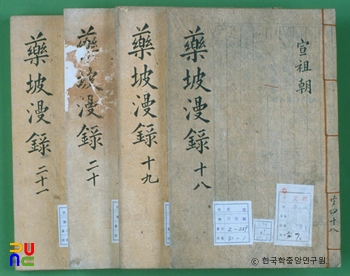 藥坡漫錄 十八
宣祖朝
藥坡漫錄 十九
藥坡漫錄 二十
藥坡漫錄 二十一
共四十八
ⓒ 한국학중앙연구원